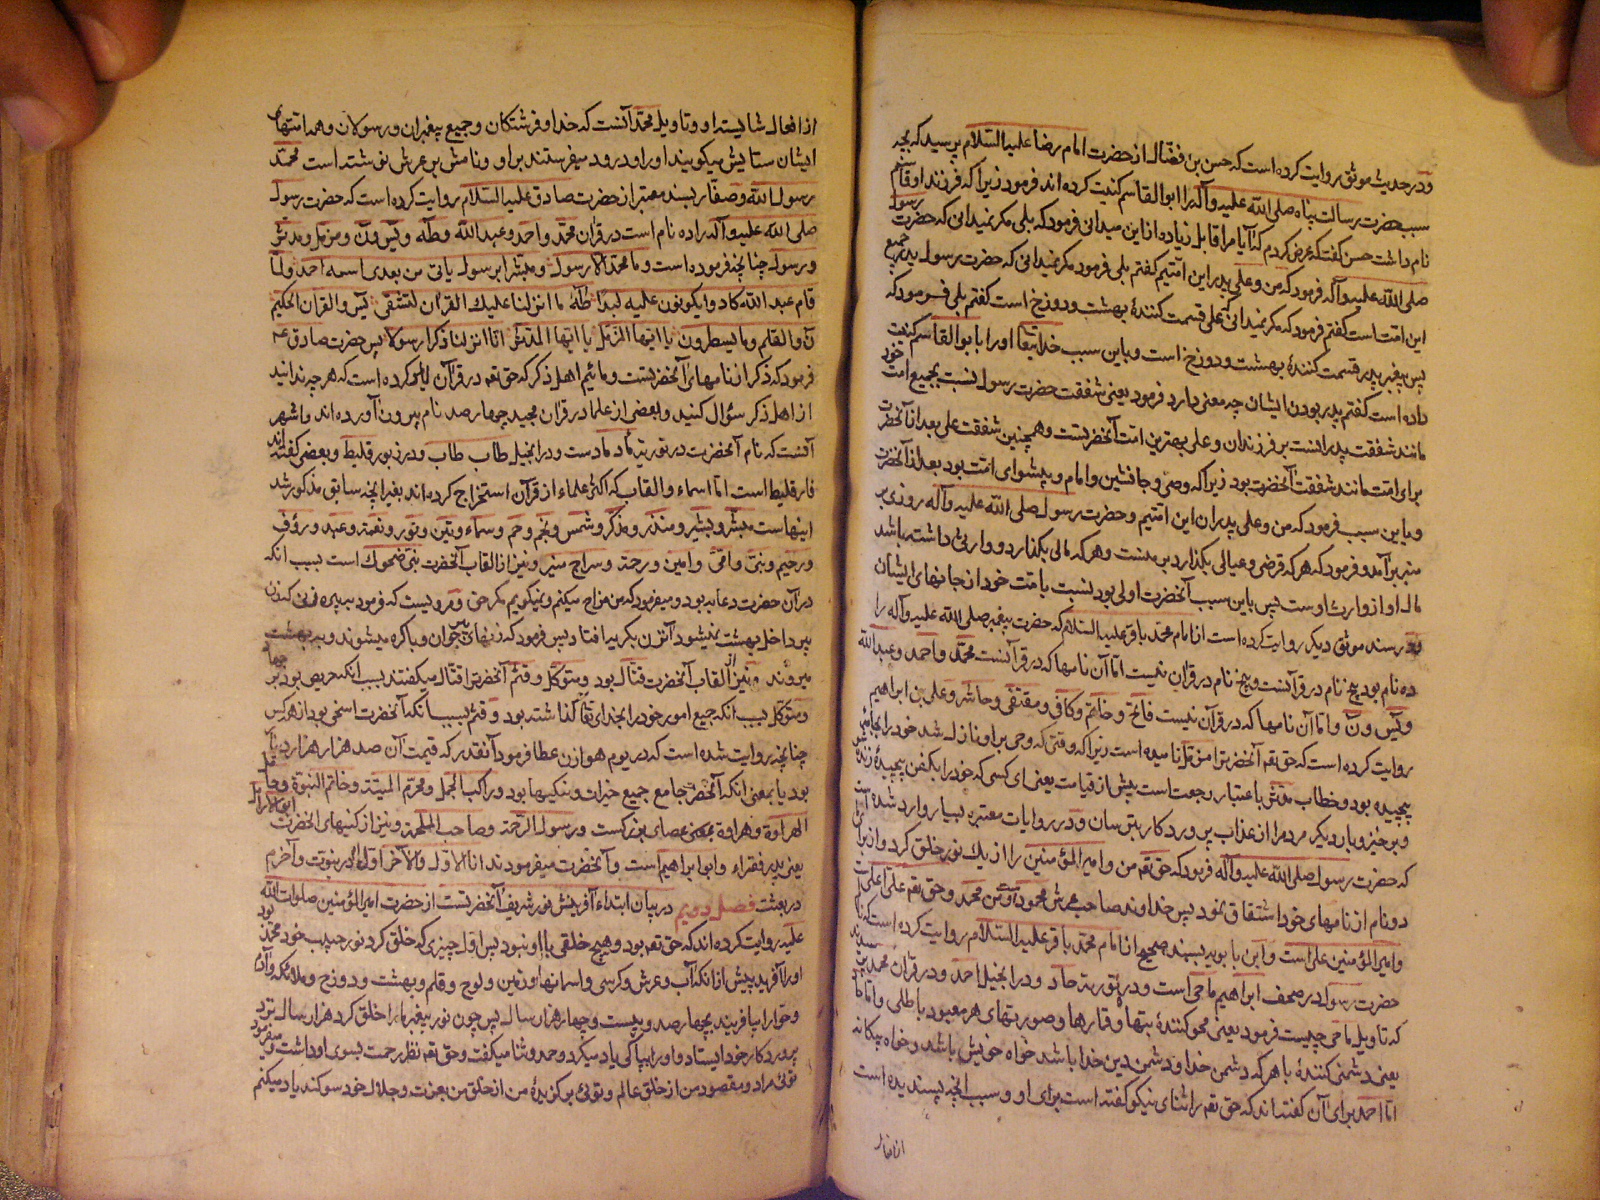 ودر حدیث موثق روایت کرده است که حسن بن فضال از حضرت امام رضا علیه السلام پرسید که بچه
سبب حضرت رسالت پناه صلی الله علیه وآله را ابوالقاسم کنیت کرده اند فرمود زیرا که فرزند او قاسم
نام داشت حسن گفت که عرض کردم که آیا مرا قابل زیاده از این میدانی فرمود که بلی مگر نمیدانی که حضرت رسول
صلی الله علیه وآله فرمود که من وعلی پدر این امتیم گفتم بلی فرمود مگر نمیدانی که حضرت رسول پدر جمیع
این امت است گفتم فرمود که مگر نمیدانی که علی قسمت کنندۀ بهشت ودوزخ است گفتم بلی فرمود که
پس پیغمبر پدر قسمت کنندۀ بهشت ودوزخ است وباین سبب خدایتعا او را بابوالقاسم کنیت
داده است گفتم پدر بودن ایشان چه معنی دارد فرمود یعنی شفقت حضرت رسول نسبت بجمیع امت خود
مانند شفقت پدرانست بر فرزندان وعلی بهترین امت آنحضرتست وهمچنین شفقت علی بعد از آنحضرت
برای امت مانند شفقت آنحضرت بود زیرا که وصی وجانشین وامام وپیشوای امت بود بعد از آنحضرت
وباین سبب فرمود که من وعلی پدران این امتیم وحضرت رسول صلی الله علیه وآله روزی بر
منبر برآمد وفرمود که هر که قرضی وعیالی بگذارد بر منست وهر که مالی بگذارد ووارثی داشته باشد
مال او از وارث اوست پس باین سبب آنحضرت اولی بود نسبت بامت خود از جانهای ایشان
ودر سند موثق دیگر روایت کرده است از امام محمد باقر علیه السلام که حضرت پیغمبر صلی الله علیه وآله را
ده نام بود پنج نام در قرآنست وپنج نام در قرآن نیست اما آن نامها که در قرآنست محمد واحمد وعبدالله
ویس ون واما آن نامها که در قرآن نیست فاتح وخاتم وکافی ومقتفی وحاشر وعلی بن ابراهیم
روایت کرده است که حق تعم آنحضرت را مزمل نامیده است زیرا که وقتی که وحی بر او نازل شد خود را بجامه
پیچیده بود وخطاب مدثر باعتبار رجعت است پیش از قیامت یعنی ای کسی که خود را بکفن پیچیدۀ زنده شو
وبرخیز وبار دیگر مردم را از عذاب پروردگار بترسان ودر روایات معتبره بسیار وارد شده است
که حضرت رسول صلی الله علیه وآله فرمود که حق تعم من وامیر المؤمنین را از یک نور خلق کرد واز برای ما
دو نام از نامهای خود اشتقاق نمود پس خداوند صاحب عرش محمود است ومن محمد وحق تعم علی اعلی است
وامیر المؤمنین علی است وابن بابویه بسند صحیح از امام محمد باقر علیه السلام روایت کرده است که نام
حضرت رسول در صحف ابراهیم ماحی است ودر توریه حاد ودر انجیل احمد ودر قرآن محمد پرسیدند
که تاویل ماحی چیست فرمود یعنی محو کنندۀ بتها وقمارها وصورتهای هر معبود باطلی واما حاد
یعنی دشمنی کنندۀ با هر که دشمن خدا ودشمن دین خدا باشد خواه خویش باشد وخواه بیگانه
اما احمد برای آن گفته اند که حق تعم را ثنای نیکو گفته است برای او وسبب آنچه پسندیده است
از افعال
از افعال شایسته او وتاویل محمد آنست که خدا وفرشتگان وجمیع پیغمبران ورسولان وهمه امتهای
ایشان ستایش میگویند او را ودرود میفرستند بر او ونامش بر عرش نوشته است محمد
رسول الله وصفار بسند معتبر از حضرت صادق علیه السلام روایت کرده است که حضرت رسول
صلی الله علیه وآله را ده نام است در قرآن محمد واحمد وعبد الله وطه ویس ون ومزمل ومدثر
ورسول چنانچه فرموده است وما محمد الا رسول ومبشرا برسول یاتی من بعدی اسمه احمد ولما
قام عبد الله کادوا یکونون علیه لبدا طه ما انزلنا علیک القرآن لتشقی یس والقران الحکیم
ن والقلم وما یسطرون یا ایها المزمل یا ایها المدثر انا انزلنا ذکرا رسولا پس حضرت صادق ع
فرمود که ذکر از نامهای آنحضرتست ومائیم اهل ذکر که حق تعم در قرآن امر کرده است که هر چه ندانید
از اهل ذکر سؤال کنید وبعضی از علما در قرآن مجید چهار صد نام بیرون آورده اند واشهر
آنست که نام آنحضرت در توریه مادمادست ودر انجیل طاب طاب ودر زبور قلیط وبعضی گفته اند
فارقلیط است اما اسماء والقاب که اکثر علماء از قرآن استخراج کرده اند بغیر آنچه سابق مذکور شد
اینهاست مبشر وبشیر ومنذر ومذکر وشمس ونجم وحم وسماء وتین ونور ونعمة وعبد ورؤف
ورحیم ونبی وامی وامین ورحمة وسراج منیر ونیز از القاب آنحضرت نبی ضحوک است بسبب انکه
در آن حضرت دعابه بود ومیفرمود که من مزاج میکنم ونمیگویم مگر حق ومرویست که فرمود به پیره زنی که زن
پیر داخل بهشت نمیشود آنزن بگریه افتاد پس فرمود که زنهای پیر جوان وباکره میشوند وبه بهشت
میروند ونیز از القاب آنحضرت قتال بود ومتوکل وقثم آنحضرت را قتال میگفتند بسبب آنکه حریص بود بر جهاد
ومتوکل بسبب آنکه جمیع امور خود را بخدای تعا گذاشته بود وقثم بسبب آنکه آنحضرت اسخی بود از هر کس
چنانچه روایت شده است که در یوم هوازن عطا فرمود آنقدر که قیمت آن صد هزار هزار دینار
بود یا بمعنی آنکه آنحضرت جامع جمیع خیرات ونیکیها بود وراکب الجمل ومحرم المیتة وخاتم النبوة وحامل
الهراوة وهراوة بمعنی عصای بزرگست ورسول الرحمة وصاحب الملحمة ونیز از کنیهای آنحضرت ابو الارامل
یعنی پدر فقراء وابو ابراهیم است وآنحضرت میفرمودند انا الاول والآخر اول در نبوت وآخرم
در بعثت فصل دویم در بیان ابتداء آفرینش نور شریف آنحضرتست از حضرت امیر المؤمنین صلوات الله
علیه روایت کرده اند که حق تعم بود وهیچ خلقی با او نبود پس اول چیزی که خلق کرد نور حبیب خود محمد بود
او را آفرید پیش از آنکه آب وعرش وکرسی واسمانها وزمین ولوح وقلم وبهشت ودوزخ وملائکه وآدم
وحوا را بیافریند بچهار صد وبیست وچهار هزار سال پس چون نور پیغمبر ما را خلق کرد هزار سال نزد
پروردگار خود ایستاد واو را بپاکی یاد میکرد وحمد وثنا میگفت وحق تعم نظر رحمت بسوی او داشت ومیفرمود
توئی مراد ومقصود من از خلق عالم وتوئی برگزیدۀ من از خلق من بعزت وجلال خود سوگند یاد میکنم